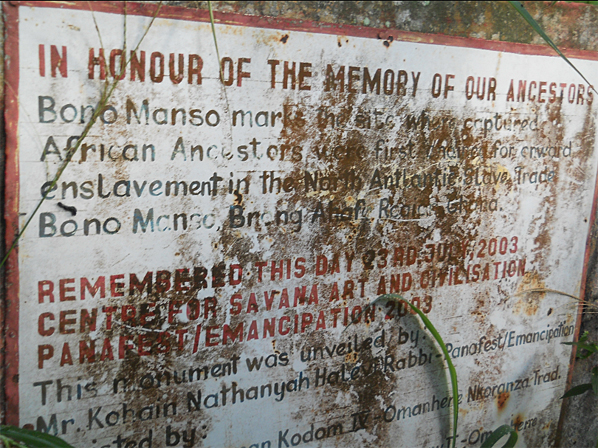 IN HONOUR OF THE MEMORY OF OUR ANCESTORS
Bono Manso marks the site where captured
African Ancestors were first for onward
enslavement in the North Antlantic Slave Trade
Bono Manso, Brong Ahafo Region Ghana.
REMEMBERED THIS DAY 23RD JULY, 2003
CENTRE FOR SAVANA ART AND CIVILISATION
PANAFEST/EMANCIPATION 2003
This monument was unveiled by:
Mr. Kohain Nathanyah Halevi Rabbi-Panafest/Emancipation
by:
Kodom IV - Omanhene Nkoranza Trad.